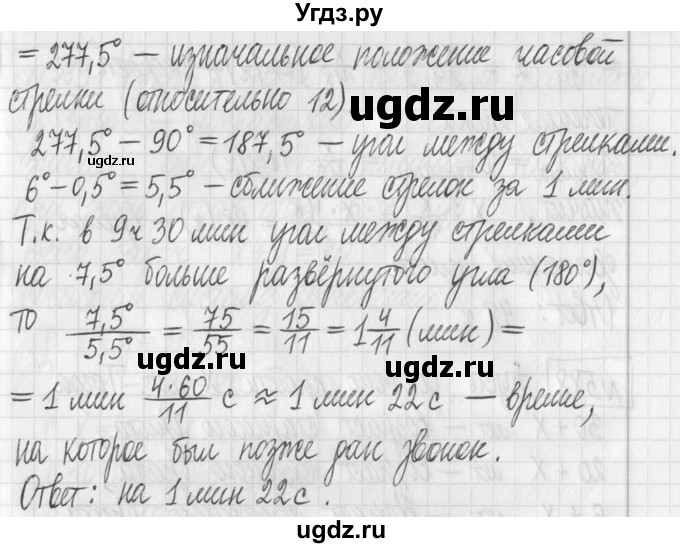 Угдз.ру
= 277,5° — изначальное положение часовой
стрелки (относительно 12)
ugdz.ru
277,5° − 90° = 187,5° — угол между стрелками.
ugdz.ru
6° − 0,5° = 5,5° — сближение стрелок за 1 мин.
Т.к. в 9 ч 30 мин угол между стрелками
на 7,5° больше развёрнутого угла (180°),
то 7,5°/5,5° = 75/55 = 15/11 = 1 4/11 (мин) =
ugdz.ru
= 1 мин 4·60/11 с ≈ 1 мин 22 с — время,
на которое был позже дан звонок.
Ответ: на 1 мин 22 с.
ugdz.ru
ugdz.ru